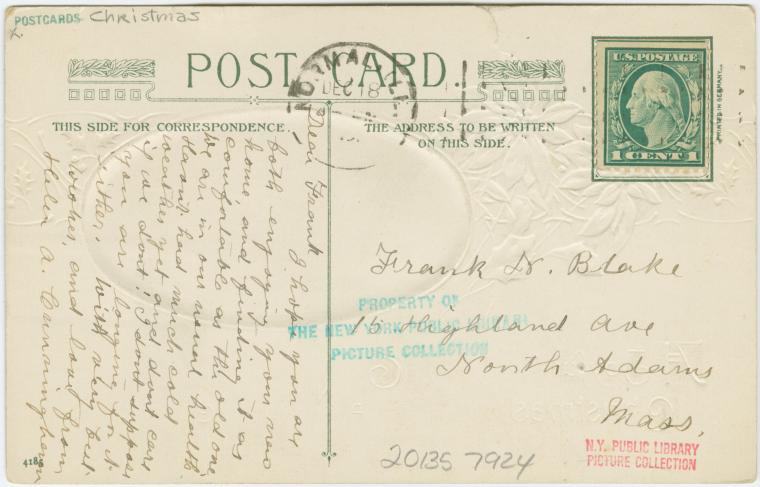 POSTCARDS Christmas
X
POST CARD.
NORMAL, ILL
DEC 18
U.S. POSTAGE
1 CENT 1
PRINTED IN GERMANY
THIS SIDE FOR CORRESPONDENCE.
THE ADDRESS TO BE WRITTEN
ON THIS SIDE.
Dear Frank
I hope you are
both enjoying your new
home, and finding it as
comfortable as the old one.
We are in our usual health.
Haven't had much cold
weather yet and don't care
if we don't. I don't suppose
you are longing for it
either. With very best
wishes, and love from
Helen A. Cunningham
Frank N. Blake
15 Highland Ave
North Adams
Mass.
PROPERTY OF
THE NEW YORK PUBLIC LIBRARY
PICTURE COLLECTION
N.Y. PUBLIC LIBRARY
PICTURE COLLECTION
20135 7924
4186